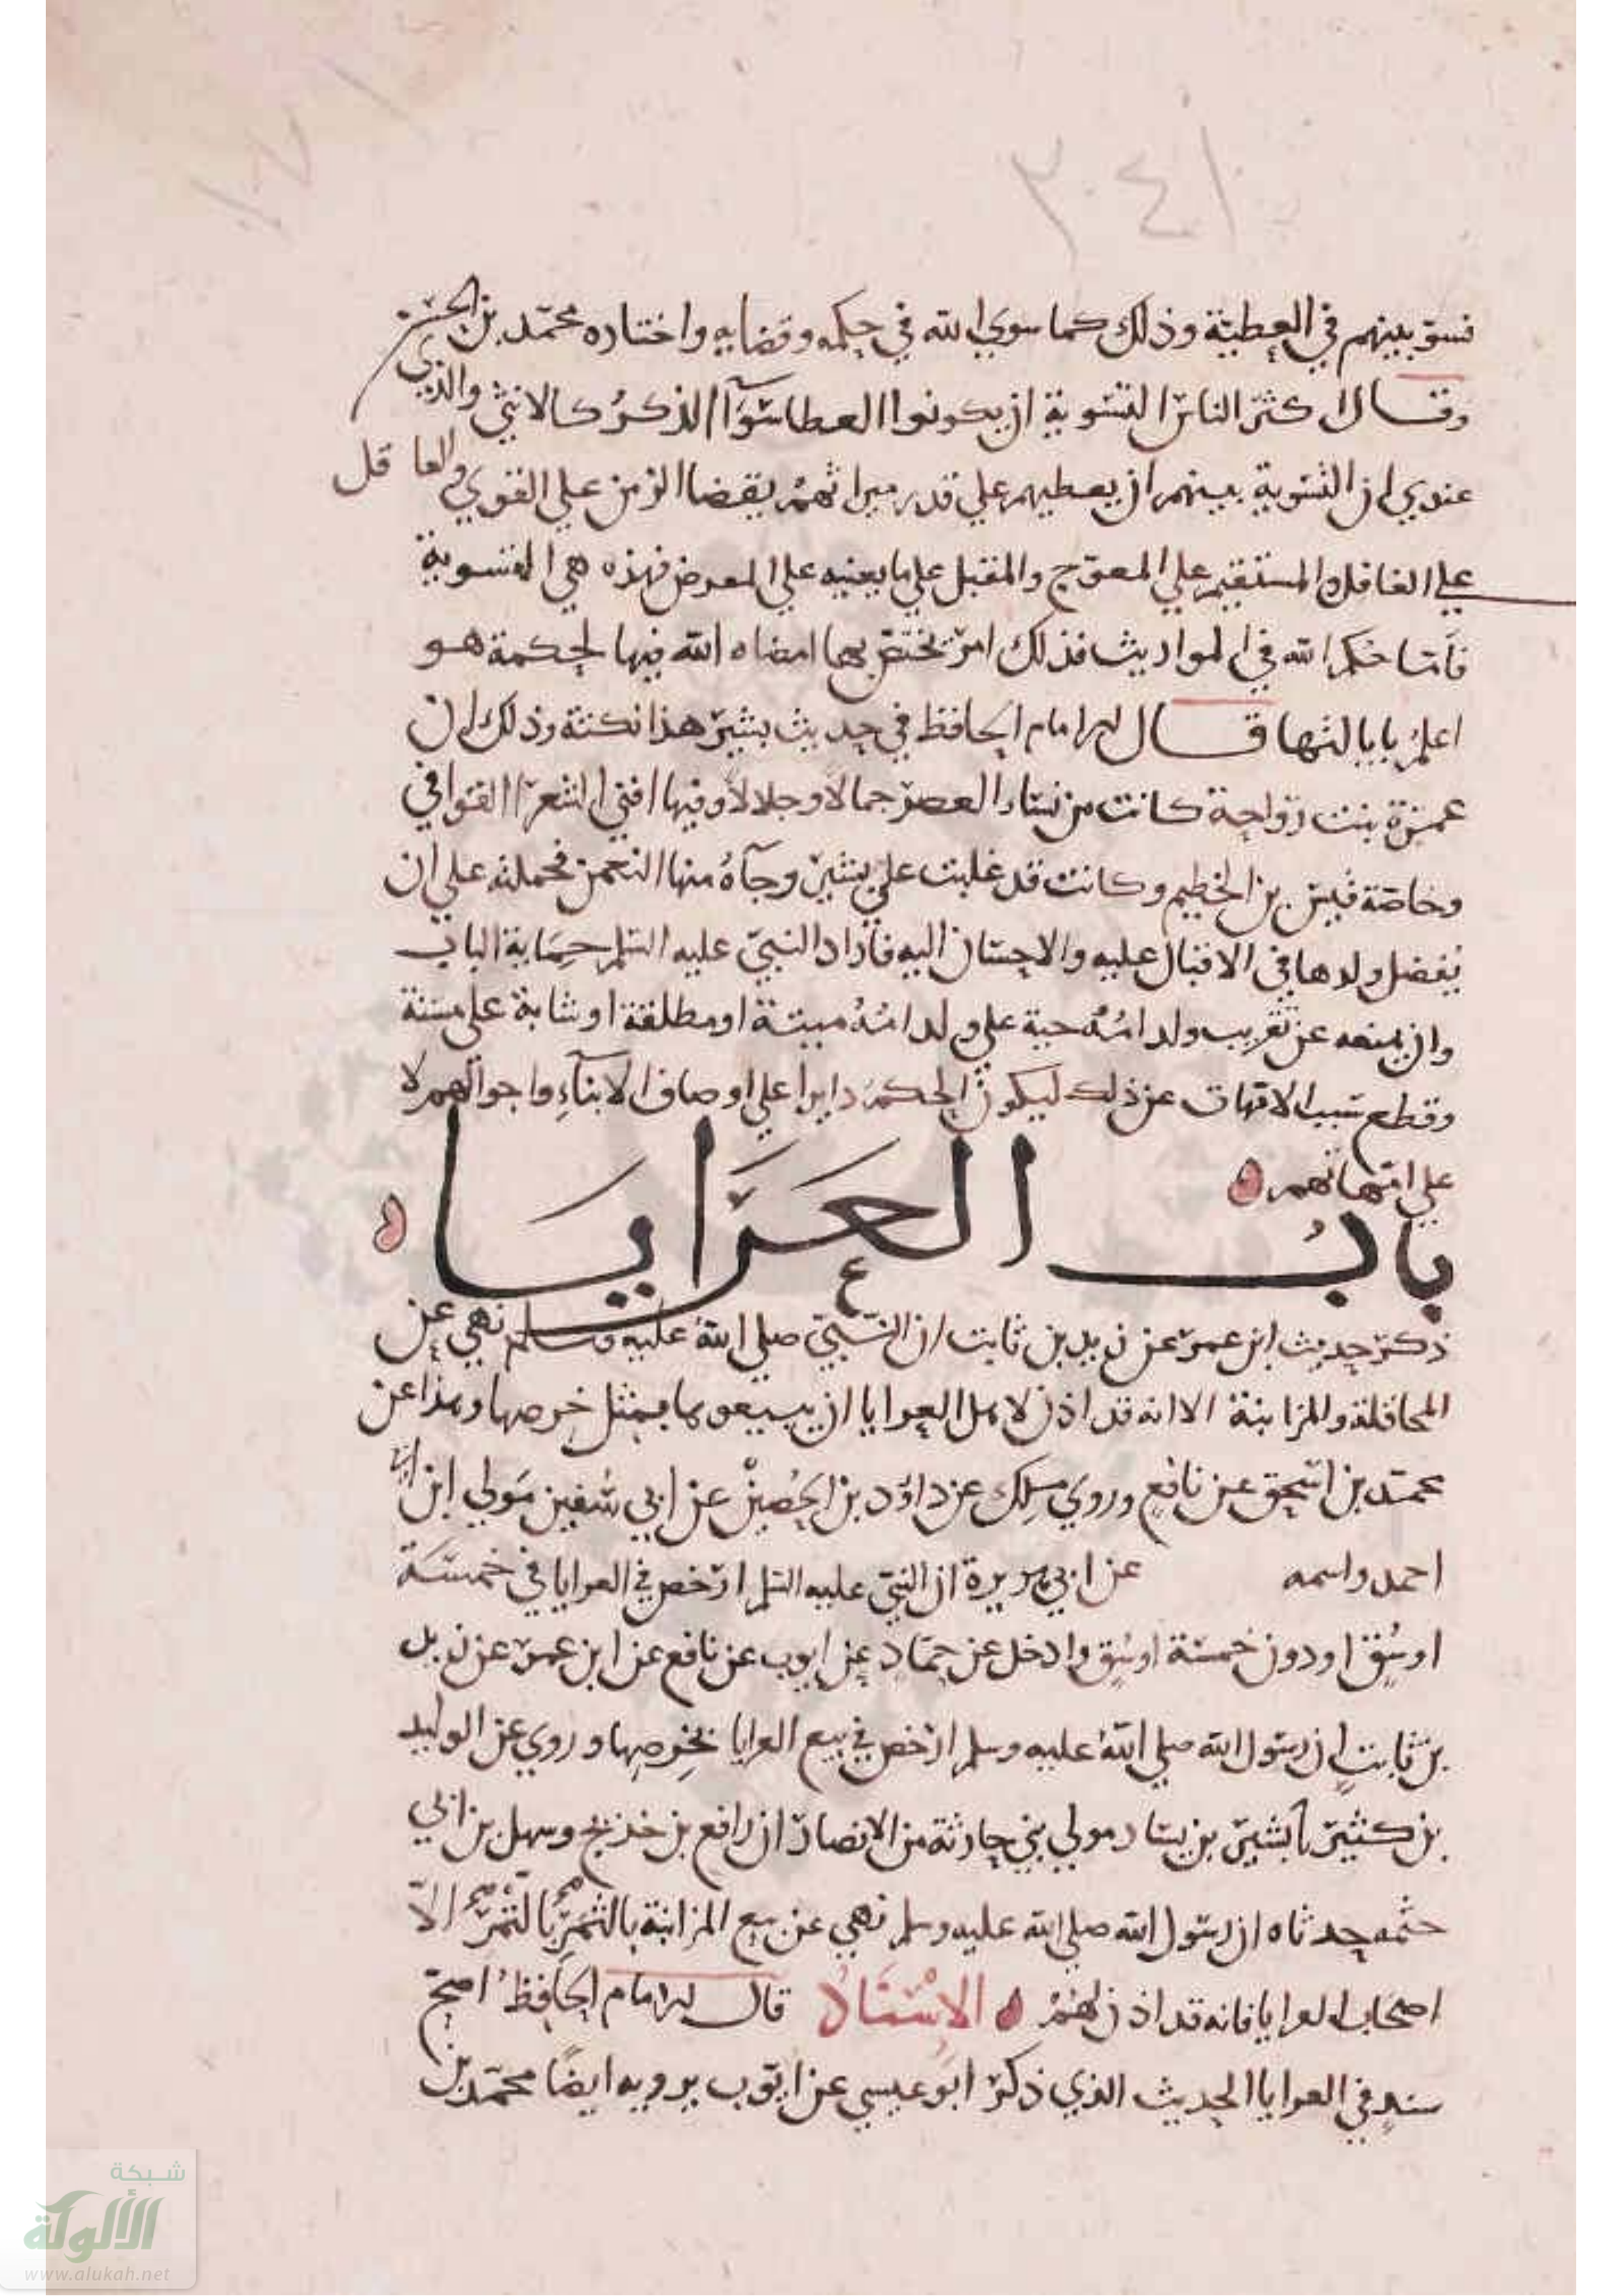 ٣٠٤١
١٠٧
فسوّ بينهم في العطية وذلك كما سوي الله في حكمه وقضايه واختاره محمّد بن الحسن
وقال اكثر الناس التسوية ان يكونوا العطا سوآ الذكر كالانثى والذي
عندي ان التسوية بينهم ان يعطيهم علي قدر ميراثهم يقضا الزمن علي القوي والعاقل
علي الغافل والمستقيم علي المعوّج والمقبل علي ما يعنيه علي المعرض فهذه هي التسوية
فأمّا حكم الله في المواريث فذلك امر يختص بهما امضاه الله فيها لحكمة هو
اعلم بابالثها قال الامام الحافظ في حديث بشير هذا نكتة وذلك ان
عمرة بنت رواحة كانت من نساء العصر جمالا وجلالا وفيها افتى الشعرا القوافي
وخاصّة قيس بن الخطيم وكانت قد غلبت علي بشير وجآه منها النعمن فحملته علي ان
يفضل ولدها في الاقبال عليه والاحسان اليه فاراد النبيّ عليه السلم حماية الباب
وان يمنعه عن تقريب ولد امّه حية علي ولد امّه ميتة او مطلقة او شابة علي مسنة
وقطع سبب الامّهات عن ذلك ليكون الحكم دايرا علي اوصاف الابنآء واحوالهم لا
علي امّهاتهم
بابُ العَرَايَا
ذكر حديث ابن عمر عن زيد بن ثابت ان النّبيّ صلي الله عليه وسلم نهي عن
المحاقلة والمزابنة الا انه قد اذن لاهل العرايا ان يبيعوها بمثل خرصها وهذا عن
محمّد بن اسحق عن نافع وروي ملك عن داوّد بن الحُصين عن ابي سفين مَولي ابن ابي
احمد واسمه عن ابي هريرة ان النبيّ عليه السلم ارخص في العرايا في خمسة
اوسُق او دون خمسة اوسُق وادخل عن حمّاد عن ايوب عن نافع عن ابن عمر عن زيد
بن ثابت ان رسول الله صلي الله عليه وسلم ارخص في بيع العرايا بخرصها وروي عن الوليد
بن كثير نا بشير بن يسار مولي بني حارثة من الانصار ان رافع بن خديج وسهل بن ابي
حثمه حدثاه ان رسول الله صلي الله عليه وسلم نهي عن بيع المزابنة بالثمر بالتمر الّا
اصحاب العرايا فانه قد اذن لهُمْ الاسْنَادُ قال الامام الحافظ اصحّ
سند في العرايا الحديث الذي ذكر ابو عيسي عن ايّوب يرويه ايضًا محمّد بن
شبكة
الألوكة
www.alukah.net